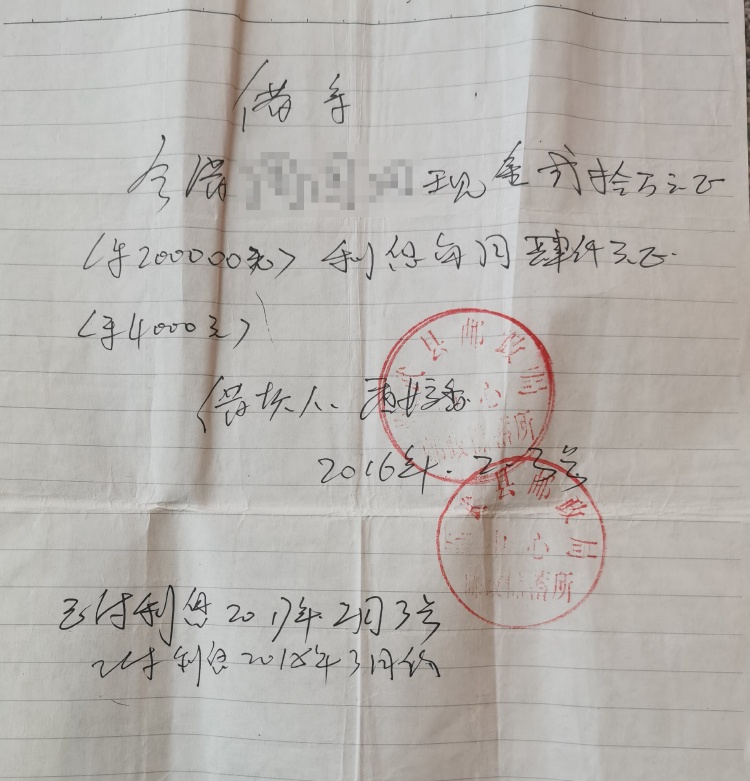 借条
今借 现金贰拾万元正
(￥200000元) 利息每月肆仟元正.
(￥4000元)
借款人:
2016年.2.3号
县邮政局
心
邮政储蓄所
县邮政局
中心
邮政储蓄所
已付利息2017年2月3号
已付利息2018年3月